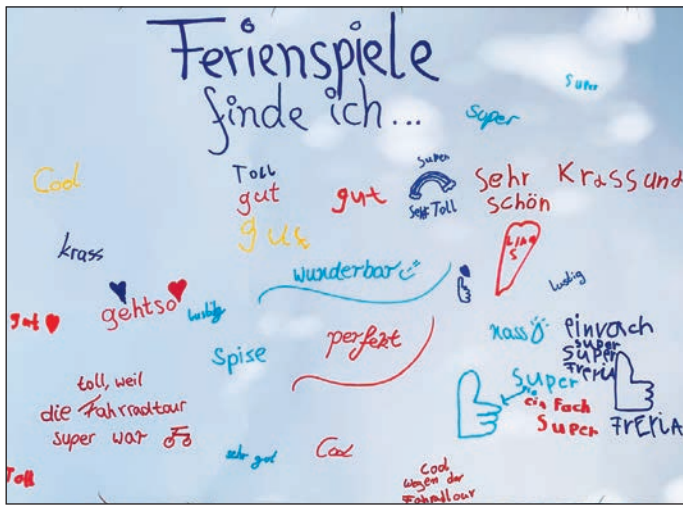 Ferienspiele
finde ich...
Super
Super
Cool
Toll
gut
gut
Super
Sehr Toll
Sehr
schön
Krass und
gus
krass
wunderbar
lustig
gut
gehtso
lustig
Spise
perfekt
nass
einvach
super
super
Freria
toll, weil
die Fahrradtour
super war
Super
ein Fach
Super
FrEriA
sehr gut
Cool
Toll
Cool
wegen der
Fahradtour